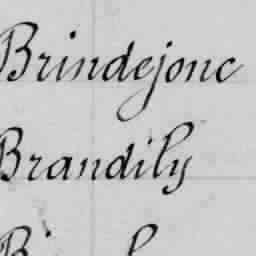 Brindejonc
Brandily